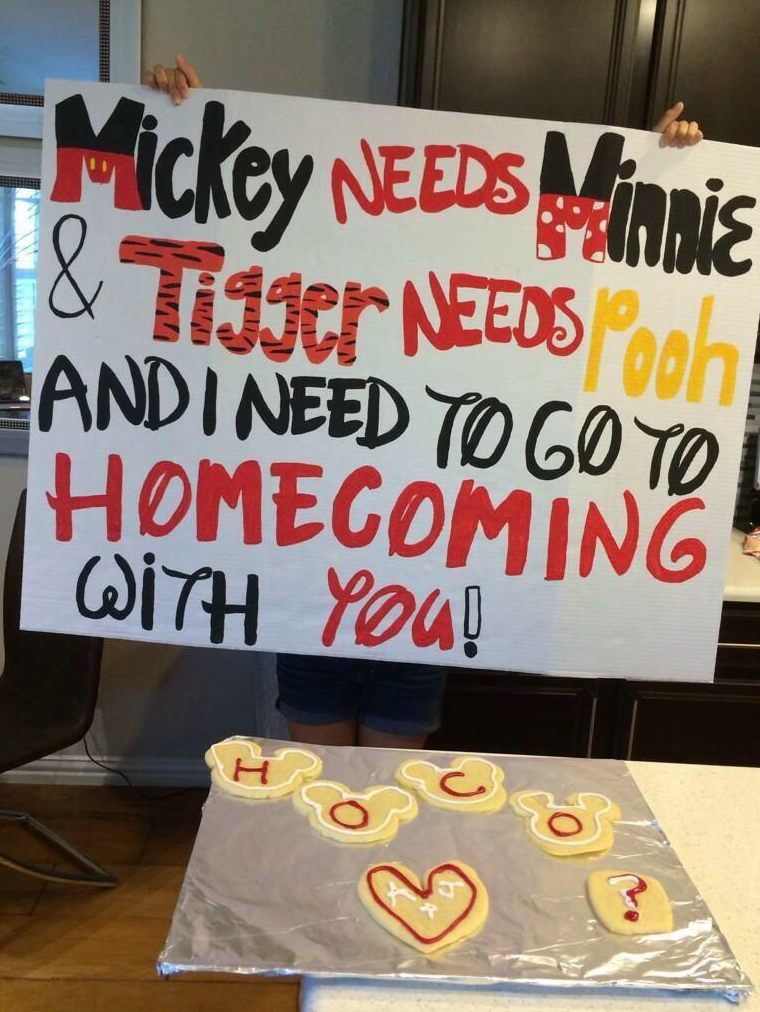 Mickey NEEDS Minnie
& Tigger NEEDS Pooh
AND I NEED TO GO TO
HOMECOMING
WiTH YOU!
H O C O
?